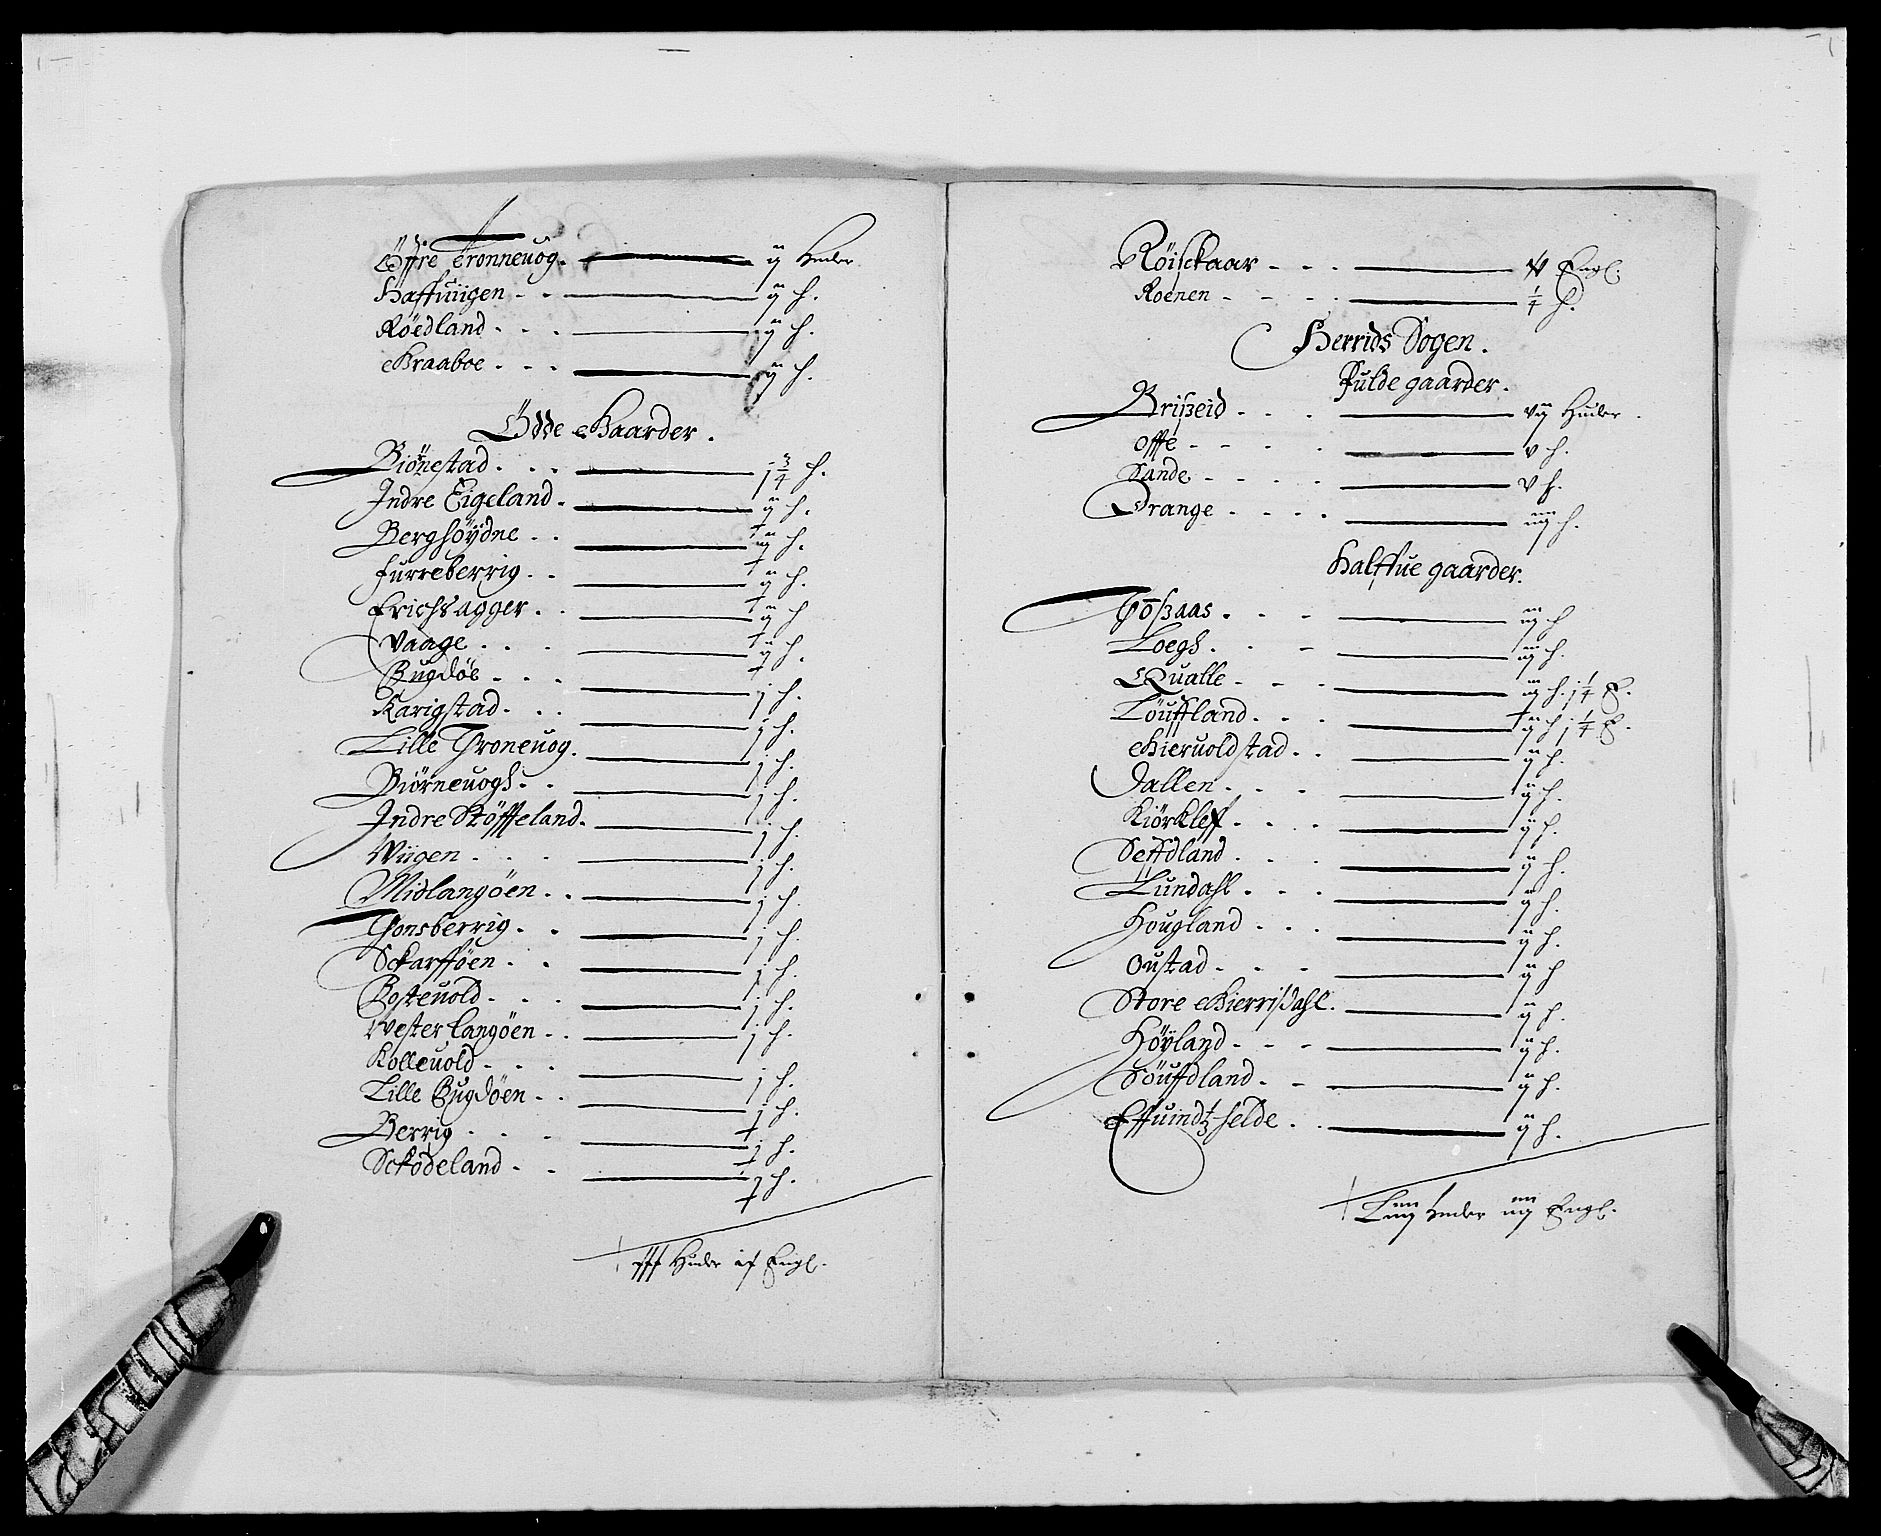 Öffre Tronneuog. ij Huder
Haffuiigen - - ij h.
Röedland - - - ij h.
Graaboe - - - ij h.
Ödde Gaarder.
Biörnestad - - - j 3/4 h.
Indre Eigeland - ij h.
Berghöydne - - h.
Furreberrig - - ij h.
Erichsagger - - ij h
Vaage - - - ij h.
Bugdöe - - - j h.
Karigstad - - - j h.
Lille Troneuog. j h.
Biörneuogh - - j h.
Indre Stöffeland. j h.
Wiigen - - - j h.
Midlangöen - - j h.
Tonsberrig - - j h.
Sckarfföen - - j h.
Bosteuold - - - j h.
Vester langöen - - j h.
Kolleuold - - - j h.
Lille Bugdöen - - j h.
Berrig - - - j h.
Sckodeland - - j h.
Huder Engl.
Röisckaar - - - Engl.
Roenen - - - - 1/4 h.
Herrids Sogen.
Fulde gaarder.
Brißeid - - - vij Huder.
Offe - - - - v h.
Sande - - - - v h.
Drange - - - - iiij h.
Halffue gaarder.
Toßaas - - - iij h
Loegh - - - iij h.
Qualle - - - iij h. j 1/4 E.
Löuffland - - - ij h j 1/4 E.
Gieruoldstad - - ij h.
Dallen - - - ij h.
Kiörkleff - - - ij h.
Seffdland - - - ij h.
Lundahl - - - ij h.
Hougland - - - ij h.
Oustad - - - ij h
Store Gierrisdahl. ij h.
Höyland - - - ij h.
Söuffdland - - ij h.
Effuindtzfelde - - ij h.
Huder iiij Engl.